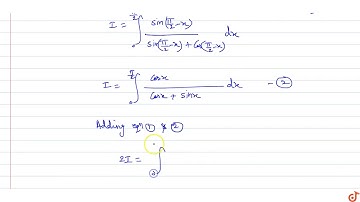 I = ∫₀^{π/2} sin(π/2 - x) / (sin(π/2 - x) + cos(π/2 - x)) dx
I = ∫₀^{π/2} cosx / (cosx + sinx) dx - ②
Adding eqn ① & ②
2I = ∫₀